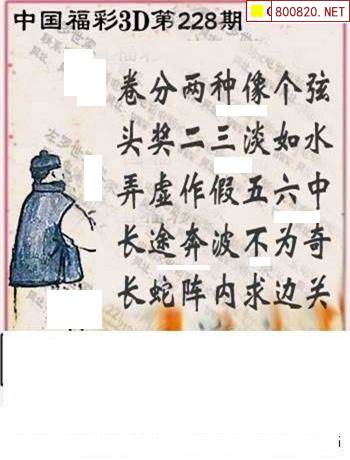 中国福彩3D第228期
800820.NET
卷分两种像个弦
头奖二三淡如水
弄虚作假五六中
长途奔波不为奇
长蛇阵内求边关
i